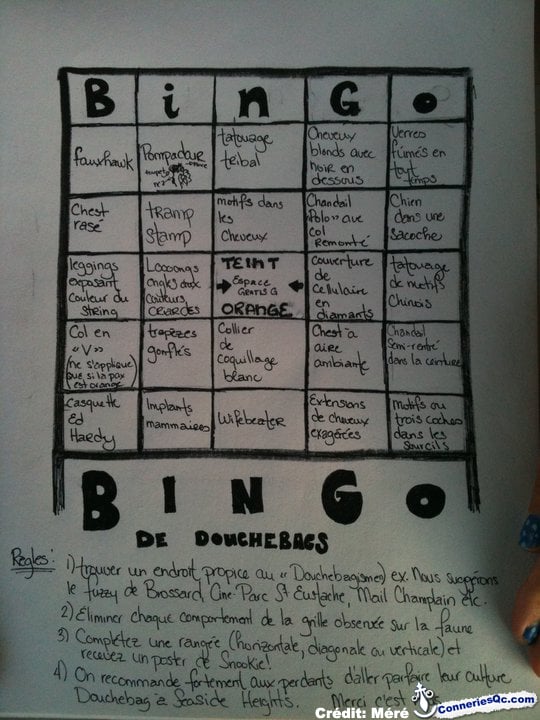 ConneriesQc.com
B i n G o
fauxhawk
Pompadour
tatouage
tribal
Cheveux
blonds avec
noir en
dessous
Verres
fumés en
tout
temps
Chest
rasé
tramp
stamp
motifs dans
les
cheveux
Chandail
"Polo" avec
col
Remonté
Chien
dans une
sacoche
leggings
exposant
couleur du
string
Looongs
ongles aux
couleurs
criardes
TEINT
ESPACE
GRATIS
ORANGE
couverture
de
cellulaire
en
diamants
tatouage
de motifs
Chinois
Col en
"V"
(ne s'applique
que si la
est orange)
trapèzes
gonflés
Collier
de
coquillage
blanc
Chest à
aire
ambiante
Chandail
semi-rentré
dans la ceinture
Casquette
Ed
Hardy
Implants
mammaires
Wifebeater
Extensions
de cheveux
exagérées
motifs ou
trois coches
dans les
sourcils
BINGO
DE DOUCHEBAGS
Règles:
1) trouver un endroit propice au "Douchebagisme") ex. Nous suggérons
le fuzzy de Brossard, Ciné-Parc St Eustache, Mail Champlain etc.
2) Éliminer chaque comportement de la grille observée sur la faune
3) Complétez une rangée (horizontale, diagonale ou verticale) et
recevez un poster de Snookie!
4) On recommande fortement aux perdants d'aller parfaire leur culture
Douchebag à Seaside Heights. Merci c'est
Crédit: Méré
ConneriesQc.com